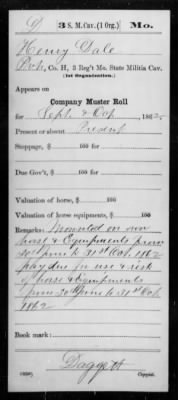 D | 3 S. M. Cav. (1 Org.) | Mo.
Henry Dale
Pvt., Co. H, 3 Reg't Mo. State Militia Cav.
(1st Organization.)
Appears on
Company Muster Roll
for Sept & Oct, 1862.
Present or absent Present
Stoppage, $ 100 for
Due Gov't, $ 100 for
Valuation of horse, $ 100
Valuation of horse equipments, $ 100
Remarks: Mounted on own
horse & Equipments from
30th June to 31st Oct. 1862
pay due for use & risk
of horse & Equipments
from 30th June to 31st Oct.
1862
Book mark:
Daggett
(858) Copyist.